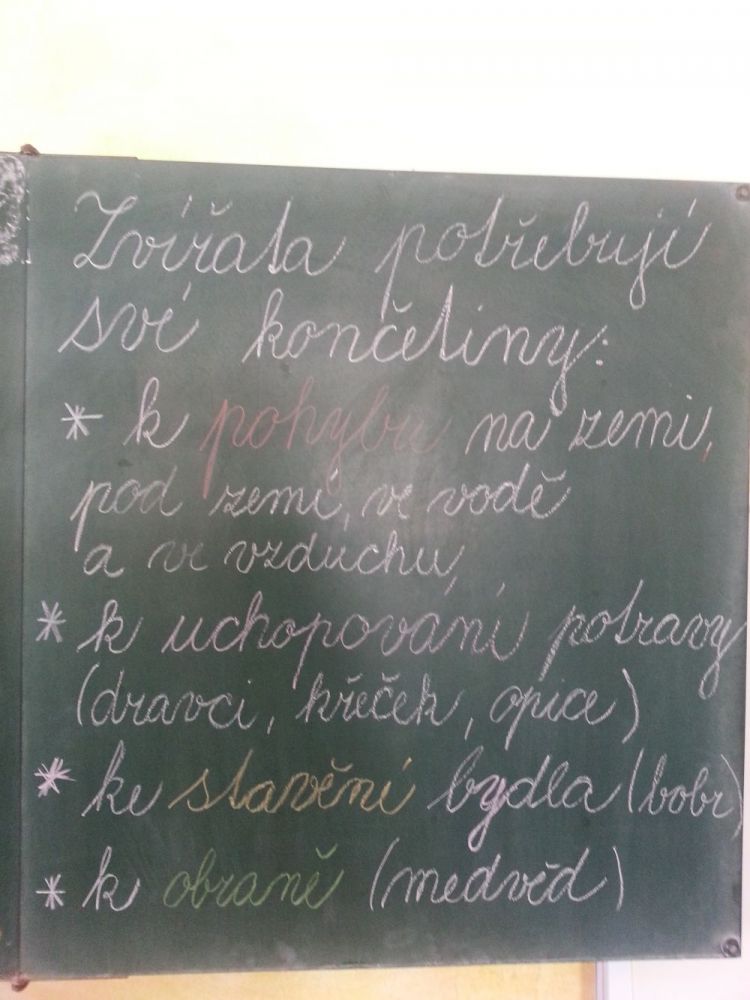 Zvířata potřebují
své končetiny:
* k pohybu na zemi,
pod zemí, ve vodě
a ve vzduchu,
* k uchopování potravy
(dravci, křeček, opice)
* ke stavění bydla (bobr)
* k obraně (medvěd)